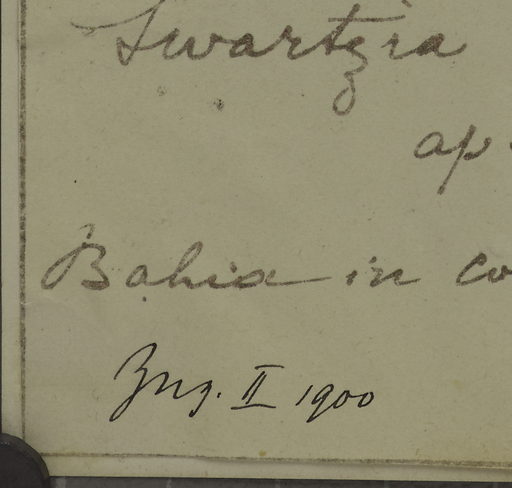 Swartzia
ap
Bahia in co
Zug. II 1900